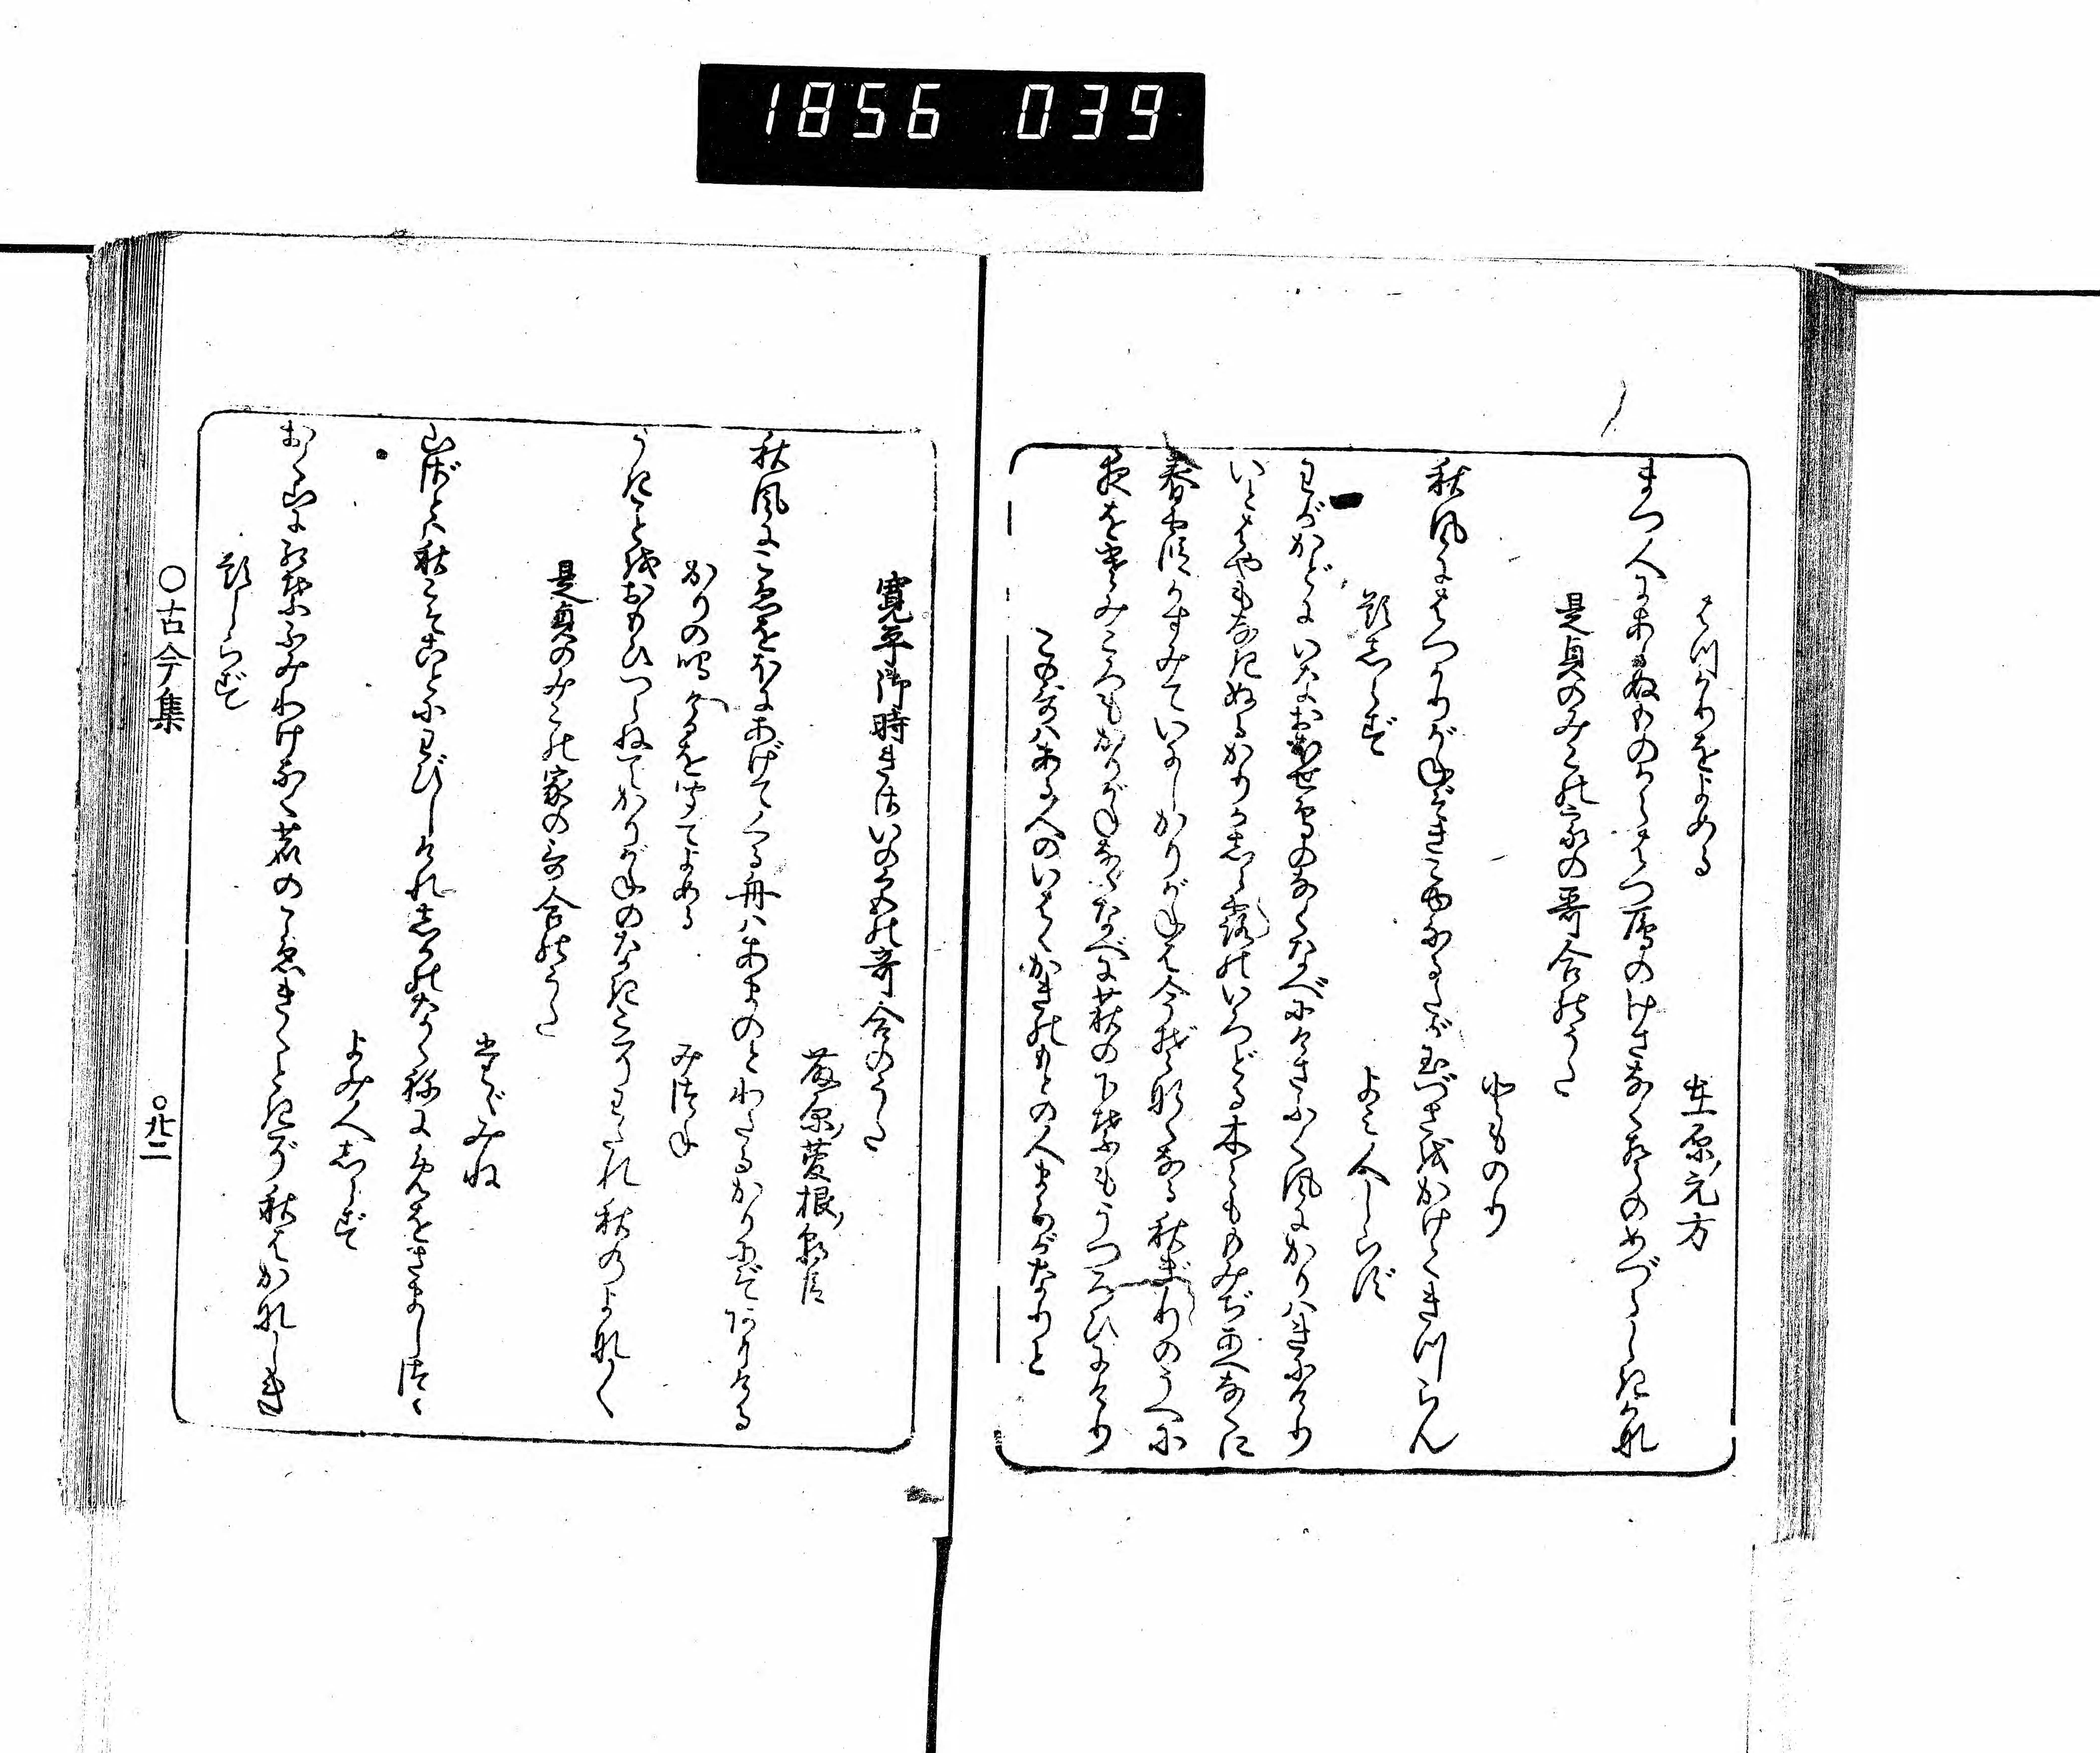 1856 039
はつかりをよめる
在原元方
まつ人にあらぬものからはつ雁のけさなくこゑのめづらしきかな
是貞のみこの家の哥合のうた
とものり
秋風にはつかりがねぞきこゆなるたが玉づさをかけてきつらん
題しらず
よみ人しらず
わがかどにいなおほせ鳥のなくなべにけさふく風にかりはきにけり
いとはやもなきぬるかりかしら露のいろどる木々ももみぢあへなくに
春霞かすみていにしかりがねは今ぞ鳴なる秋ぎりのうへに
夜をさむみころもかりがねなくなべに萩の下葉もうつろひにけり
このうたはある人のいはくかきのもとの人まろがなりと
寛平御時きさいの宮の哥合のうた
藤原菅根朝臣
秋風にこゑをほにあげてくる舟はあまのとわたるかりにぞありける
かりの鳴けるを聞てよめる
みつね
うきことをおもひつらねてかりがねのなきこそわたれ秋のよなよな
是貞のみこの家の哥合のうた
たゞみね
山ざとは秋こそことにわびしけれしかのなくねにめをさましつゝ
よみ人しらず
おく山に紅葉ふみわけなく鹿のこゑきくときぞ秋はかなしき
題しらず
○古今集
○廿二